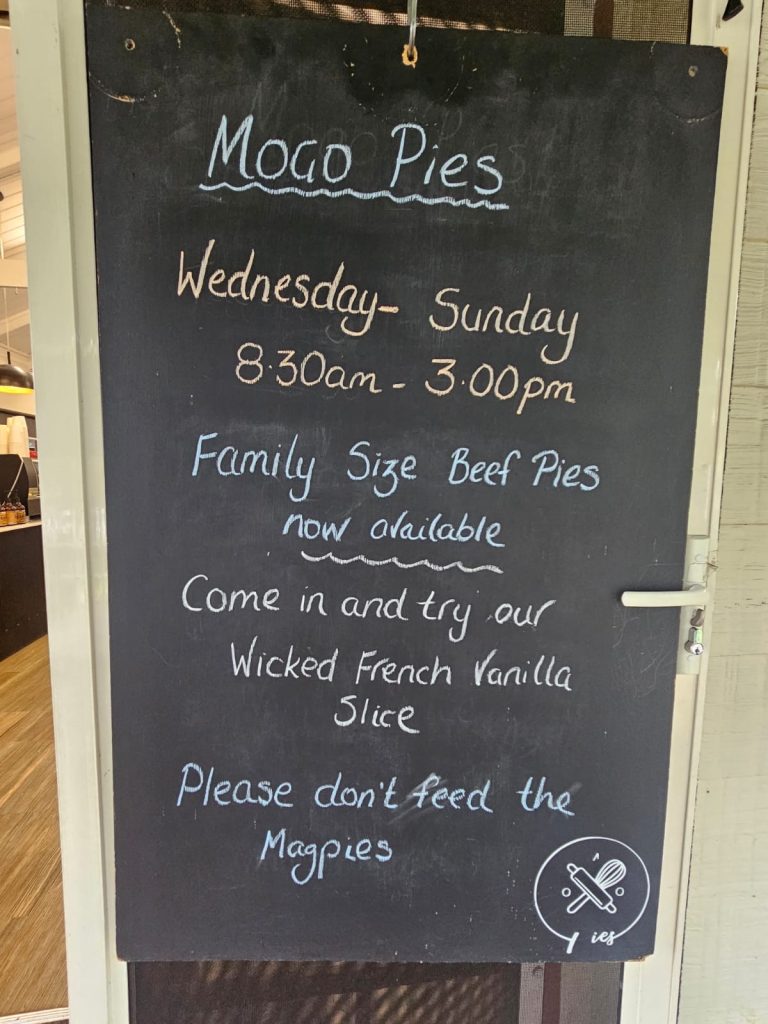 Mogo Pies
Wednesday- Sunday
8.30am - 3.00pm
Family Size Beef Pies
now available
Come in and try our
Wicked French Vanilla
Slice
Please don't feed the
Magpies